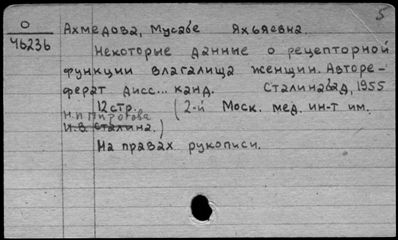 5
О
46236
Ахмедова, Мусабе Яхьяевна.
Некоторые данные о рецепторной
функции влагалища женщин. Авторе-
ферат дисс... канд. Сталинабад, 1955
12 стр. (2-й Моск. мед. ин-т им.
Н.И Пирогова
И.В. Сталина.)
На правах рукописи.